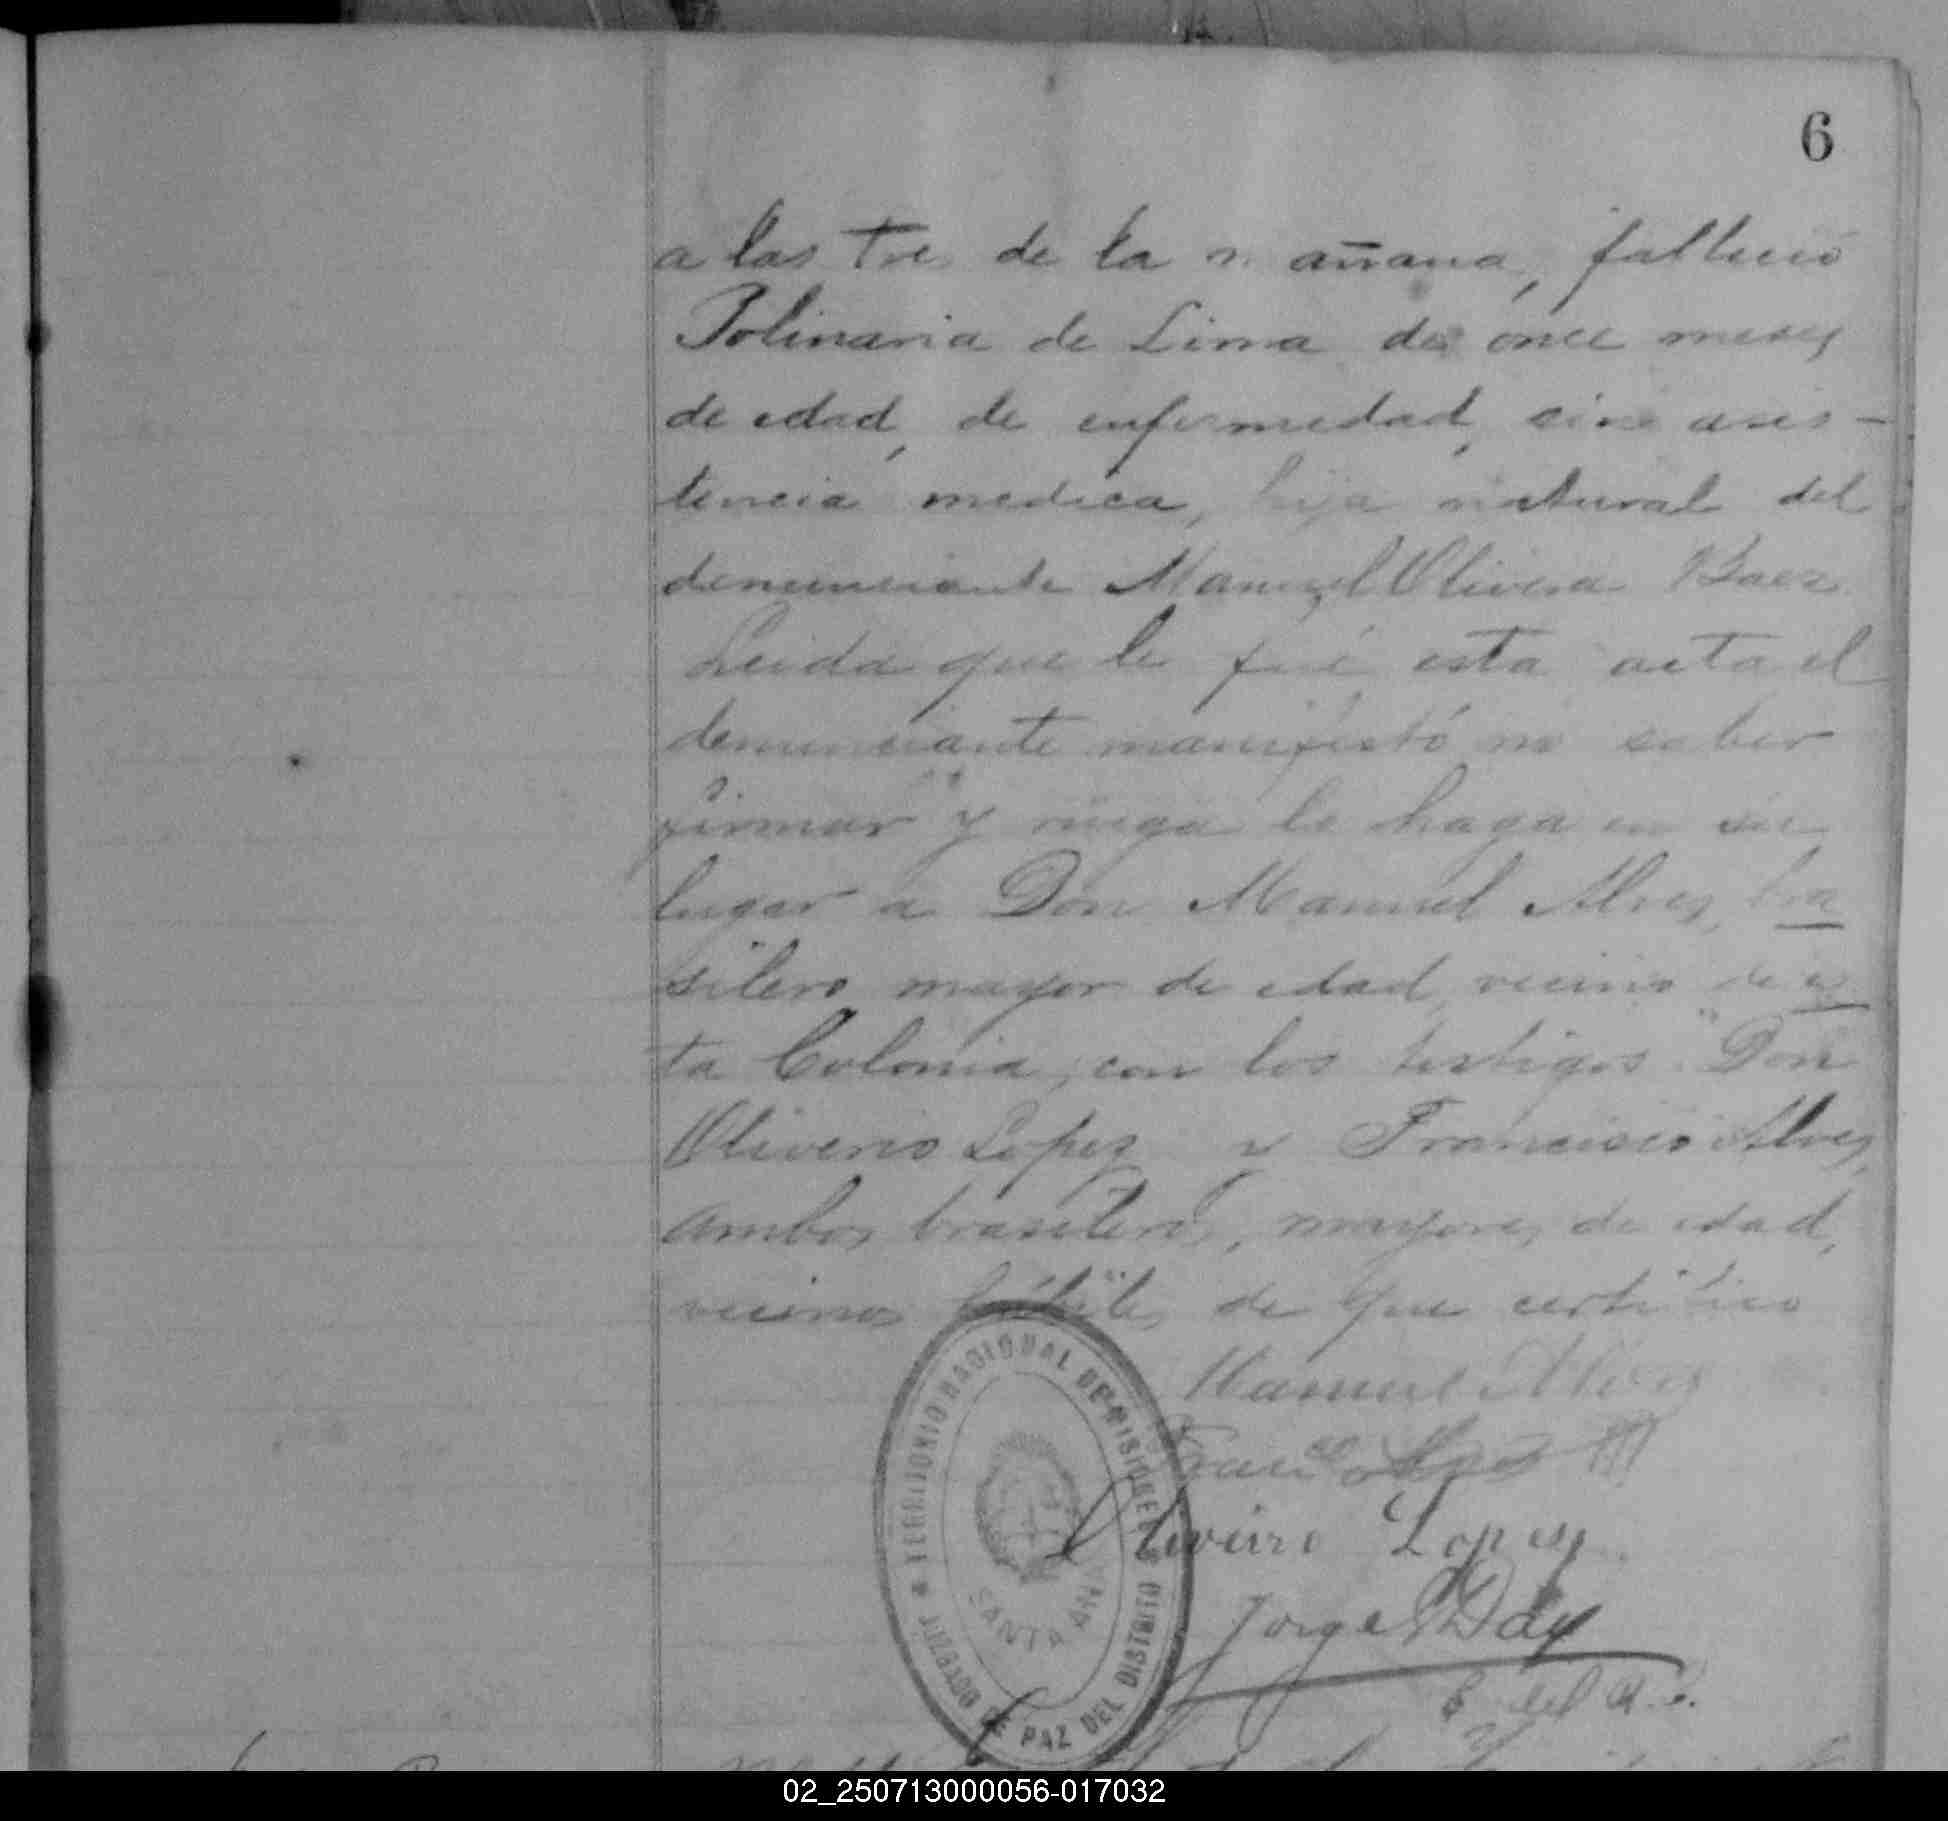 6
a las tres de la mañana, falleció
Polinaria de Lima de once meses
de edad, de enfermedad, sin asis-
tencia medica, hija natural del
denunciante Manuel Olivera Baez.
Leida que le fué esta acta el
denunciante manifestó no saber
firmar y ruega lo haga en su
lugar a Don Manuel Alves, bra
silero mayor de edad, vecino de es
ta Colonia, con los testigos Don
Oliverio Lopez y Francisco Alves,
ambos brasileros, mayores de edad,
vecinos hábiles de que certifico
Manuel Alves
Franco Alves
Oliveiro Lopez
Jorge
E. del R. C.
TERRITORIO NACIONAL DE MISIONES
JUZGADO DE PAZ DEL DISTRITO
SANTA ANA
02_250713000056-017032